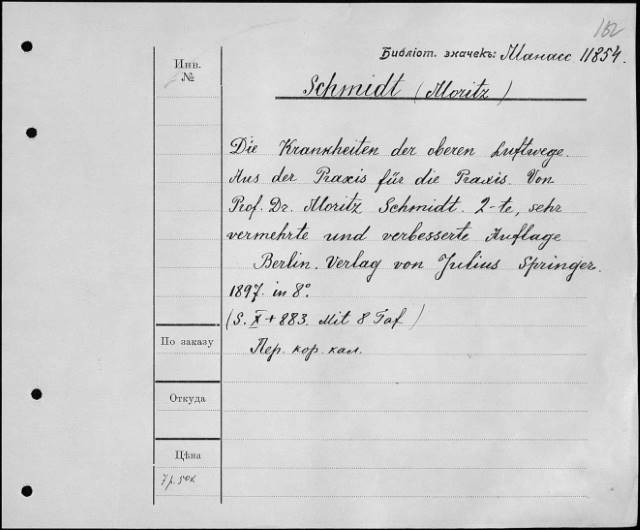 162
Библіот. значекъ: Манасс 11854.
Инв.
№
Schmidt (Moritz)
Die Krankheiten der oberen Luftwege.
Aus der Praxis für die Praxis. Von
Prof. Dr. Moritz Schmidt. 2-te, sehr
vermehrte und verbesserte Auflage
Berlin. Verlag von Julius Springer.
1897. in 8°.
(S. X + 883. Mit 8 Taf)
По заказу
Пер. кор. кал.
Откуда
Цѣна
7 р. 50 к